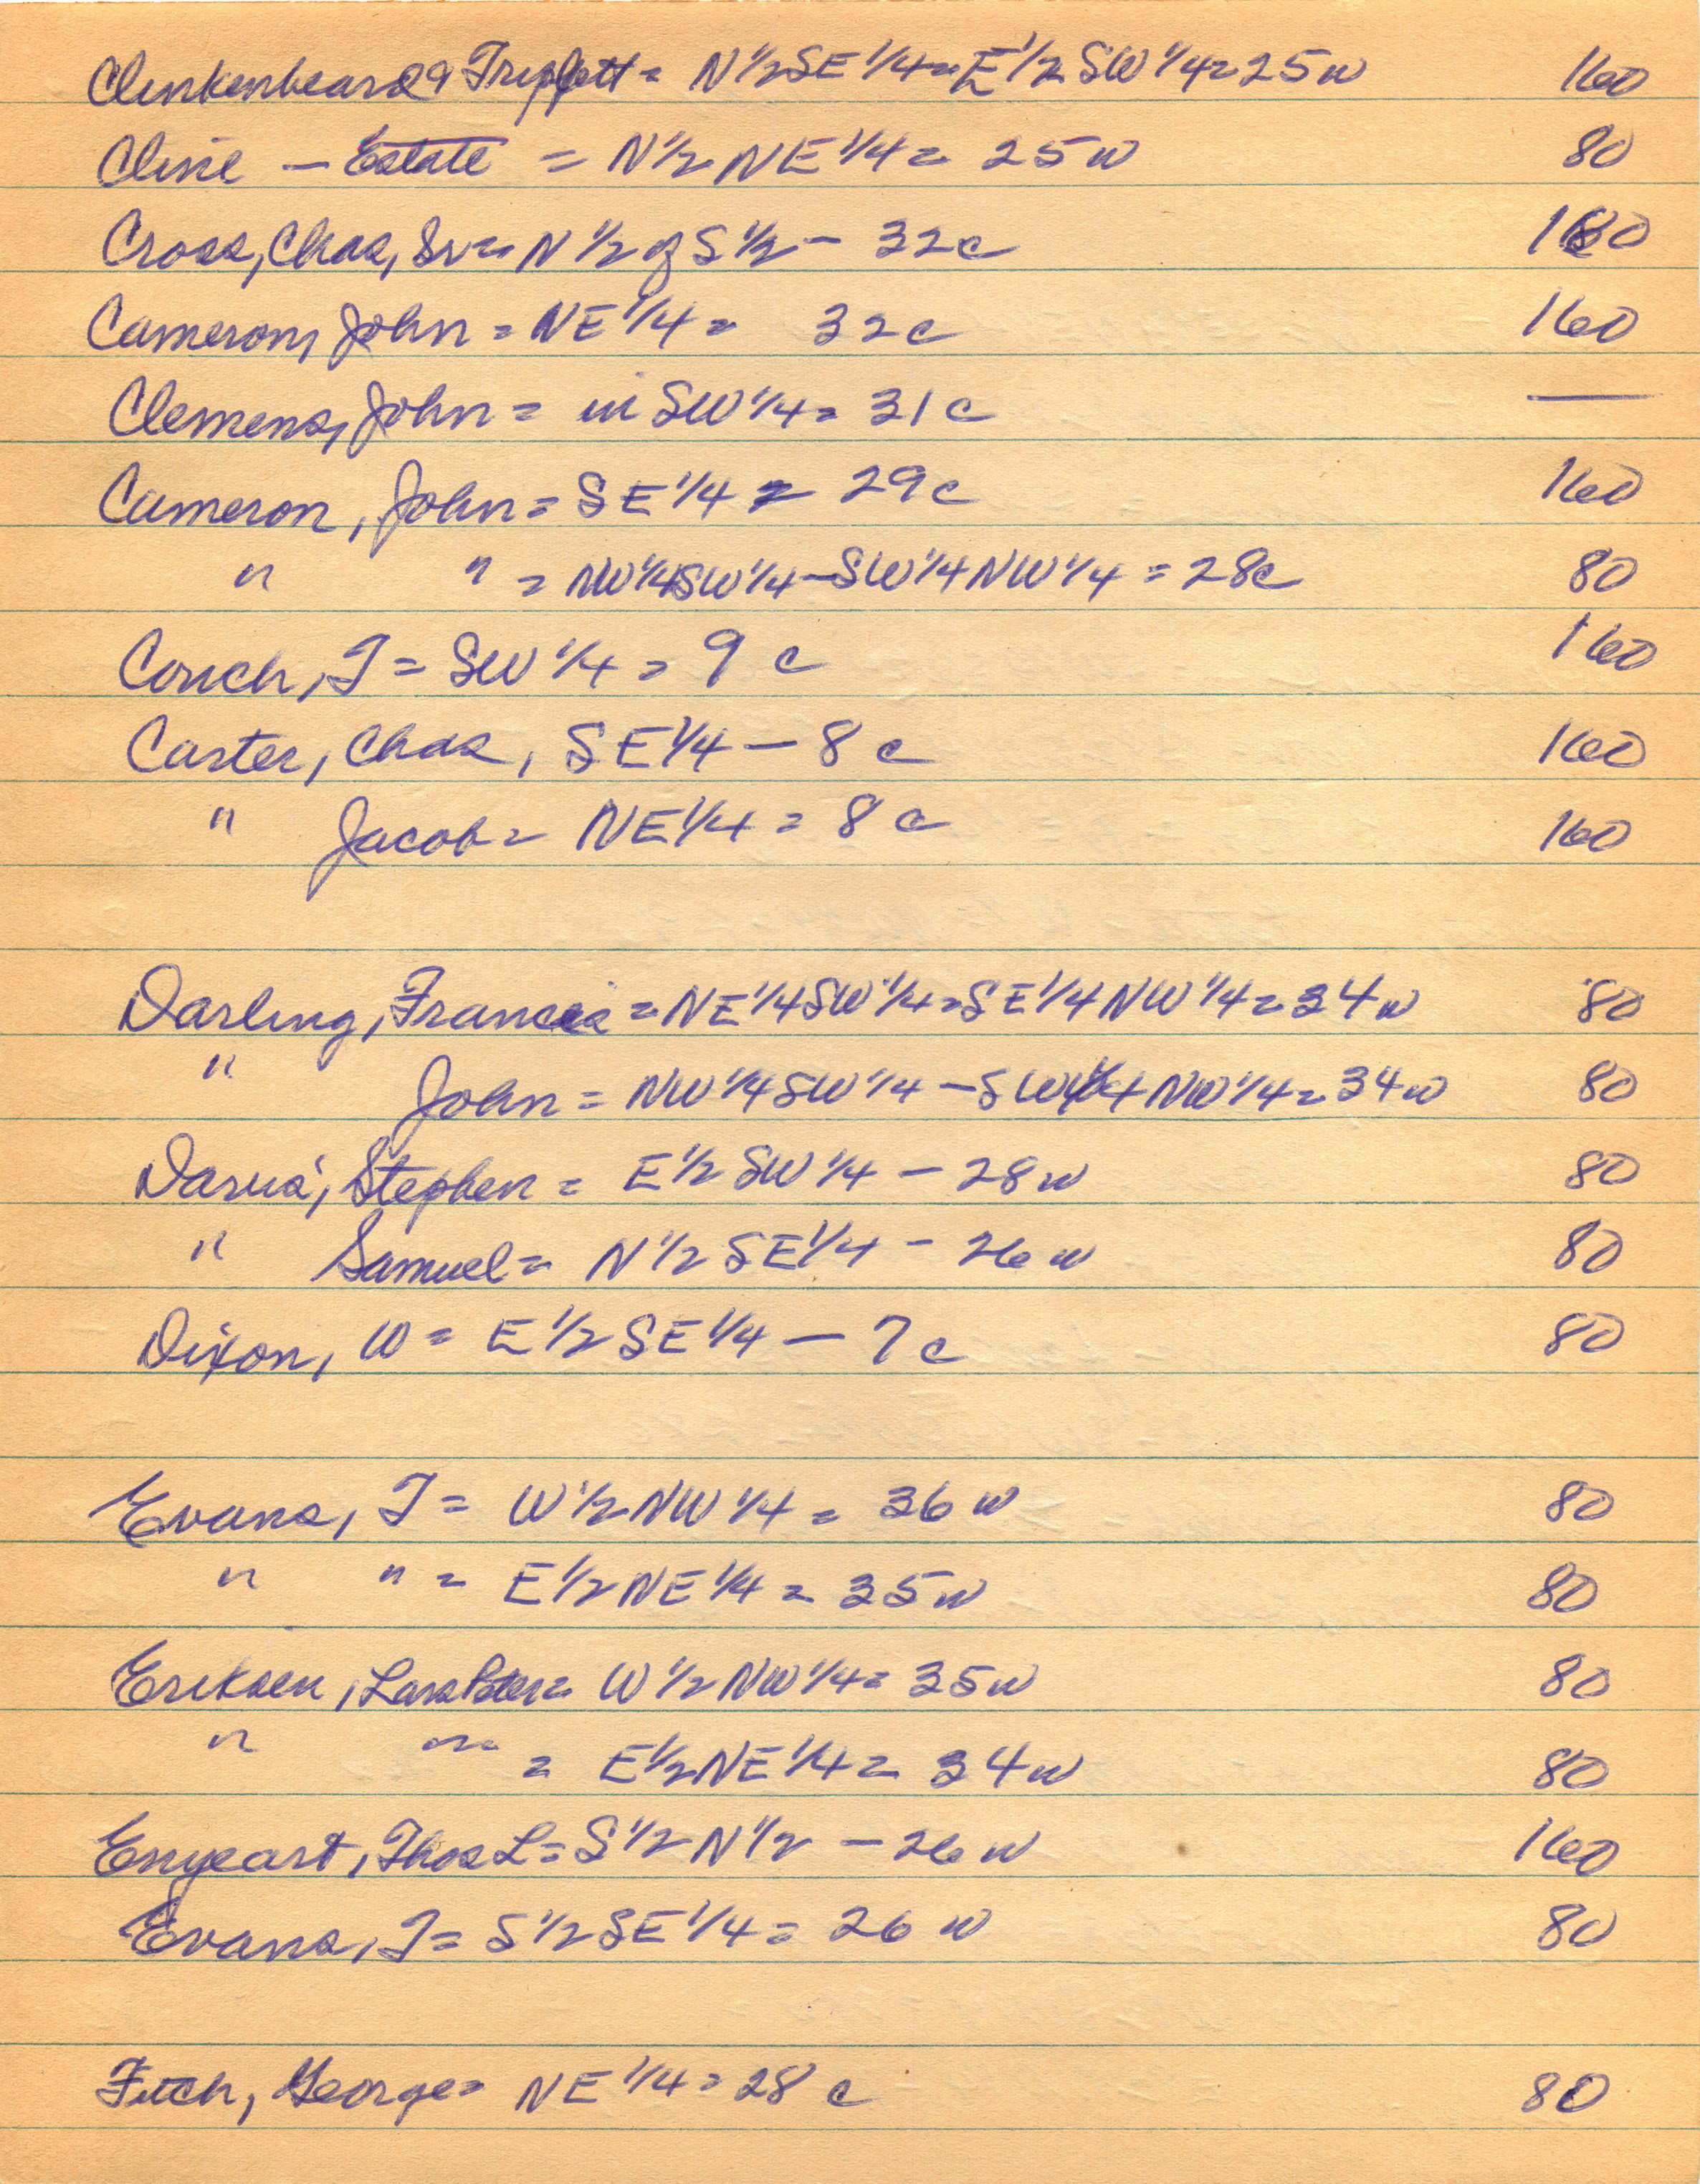 Clinkenbeard & Triplett = N 1/2 SE 1/4 = E 1/2 SW 1/4 = 25 w 160
Cline — Estate = N 1/2 NE 1/4 = 25 w 80
Cross, Chas, Sr = N 1/2 of S 1/2 — 32 c 160
Cameron, John = NE 1/4 = 32 c 160
Clemens, John = in SW 1/4 = 31 c —
Cameron, John = SE 1/4 = 29 c 160
" " = NW 1/4 SW 1/4 — SW 1/4 NW 1/4 = 28 c 80
Couch, T = SW 1/4 = 9 c 160
Carter, Chas, SE 1/4 — 8 c 160
" Jacob = NE 1/4 = 8 c 160
Darling, Francis = NE 1/4 SW 1/4 = SE 1/4 NW 1/4 = 34 w 80
" John = NW 1/4 SW 1/4 — SW 1/4 NW 1/4 = 34 w 80
Davis, Stephen = E 1/2 SW 1/4 — 28 w 80
" Samuel = N 1/2 SE 1/4 — 26 w 80
Dixon, W = E 1/2 SE 1/4 — 7 c 80
Evans, T = W 1/2 NW 1/4 = 36 w 80
" " = E 1/2 NE 1/4 = 35 w 80
Eriksen, Lars Peter = W 1/2 NW 1/4 = 35 w 80
" " " = E 1/2 NE 1/4 = 34 w 80
Enyeart, Thos L = S 1/2 N 1/2 — 26 w 160
Evans, T = S 1/2 SE 1/4 = 26 w 80
Fitch, George = NE 1/4 = 28 c 80